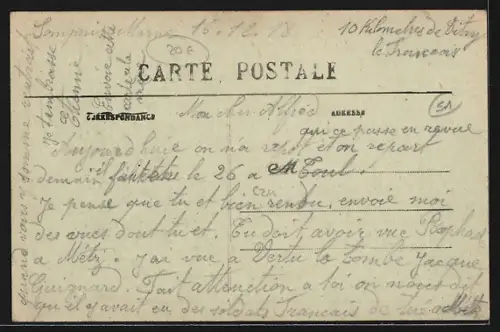 Sompuis Marne 16.12.18
10 Kilometres de Vitry
le Francois
20 F
CARTE POSTALE
CORRESPONDANCE
ADRESSE
51
Mon cher Alfred
qui ce passe en revue
Aujourd'huie on n'a et on repart
demain le 26 a Toul.
Je pense que tu et bien rendu, envoie moi
des vues dout tu et. En doit avoir vue Raphael
a Mètz. J'ai vue a Vertu la tombe Jacque
Guignard. Fait attenction a toi on nous dit
qu'il y avait eu des soldats Francais de tué a Metz
quand vous
je t'embrasse
Etienne
Envoie cette
carte a la